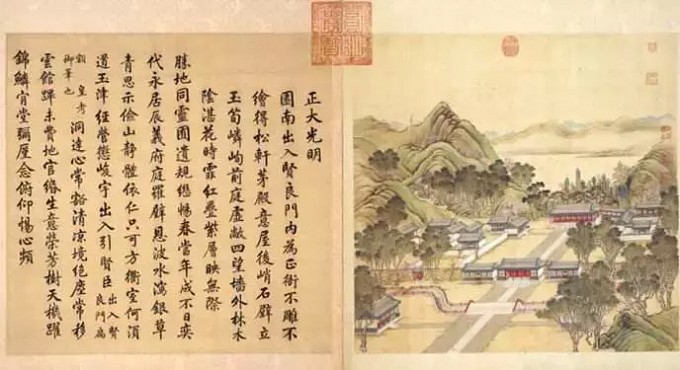 正大光明
園南出入賢良門内為正衙不雕不
繪得松軒茅殿意屋後峭石壁立
玉筍嶙峋前庭虛敞四望墻外林木
陰湛花時霏紅疊紫層映無際
勝地同靈囿遺規繼暢春當年成不日奕
代永居辰義府庭羅璧恩波水瀉銀草
青思示儉山静體依仁只可方衢室何須
道玉津經營懲峻宇出入引賢臣出入賢良門扁
額皇考御筆也洞達心常豁清凉境絕塵常移
雲館蹕未費地官緡生意榮芳樹天機躍
錦鱗肯堂彌厪念俯仰惕心頻